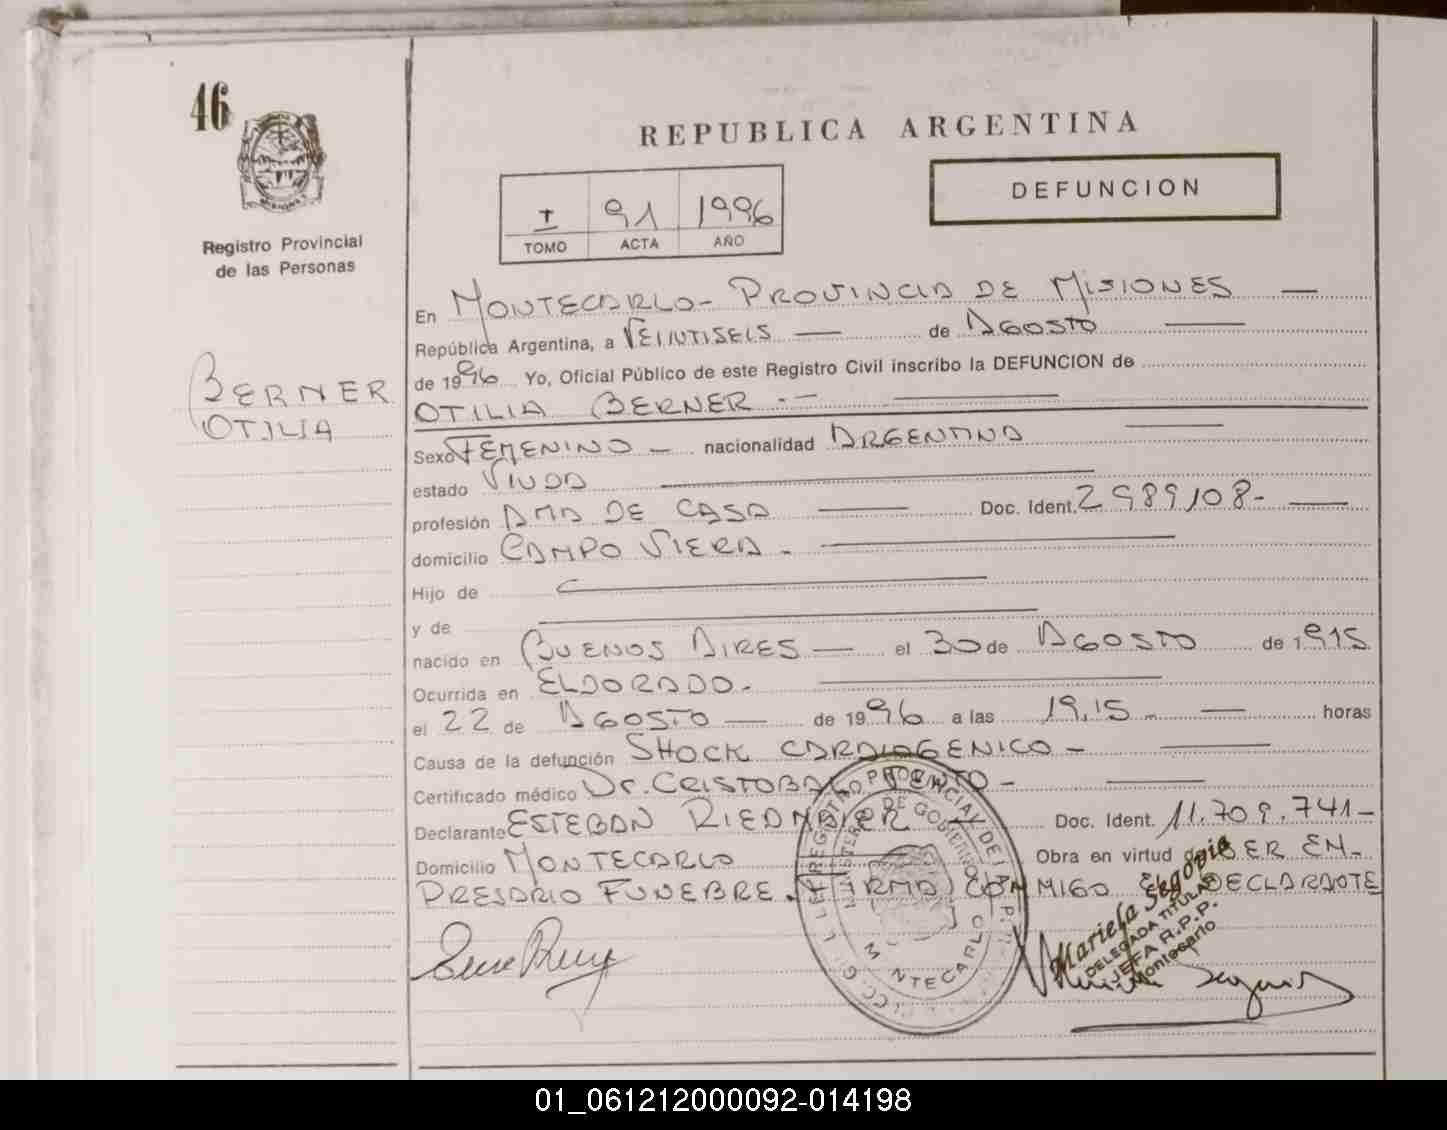 46
REPUBLICA ARGENTINA
DEFUNCION
I 91 1996
TOMO ACTA AÑO
Registro Provincial
de las Personas
BERNER
OTILIA
En MONTECARLO - PROVINCIA DE MISIONES —
República Argentina, a VEINTISEIS — de AGOSTO —
de 1996 Yo, Oficial Público de este Registro Civil inscribo la DEFUNCION de
OTILIA BERNER . — —
Sexo FEMENINO — nacionalidad ARGENTINA —
estado VIUDA —
profesión AMA DE CASA — Doc. Ident. 2989108- —
domicilio CAMPO VIERA - —
Hijo de —
y de —
nacido en BUENOS AIRES — el 30 de AGOSTO de 1915
Ocurrida en ELDORADO. —
el 22 de AGOSTO — de 1996 a las 19,15 - — horas
Causa de la defunción SHOCK CARDIOGENICO - —
Certificado médico Dr. CRISTOBAL - —
Declarante ESTEBAN RIEDMAIER — Doc. Ident. 11.709.741-
Domicilio MONTECARLO — Obra en virtud de SER EM-
PRESARIO FUNEBRE. FIRMA CONMIGO EL DECLARANTE
REGISTRO PROVINCIAL DE LAS P.
MINISTERIO DE GOBIERNO
MONTECARLO
Mariela Segovia
DELEGADA TITULAR
JEFA R.P.P.
Montecarlo
01_061212000092-014198